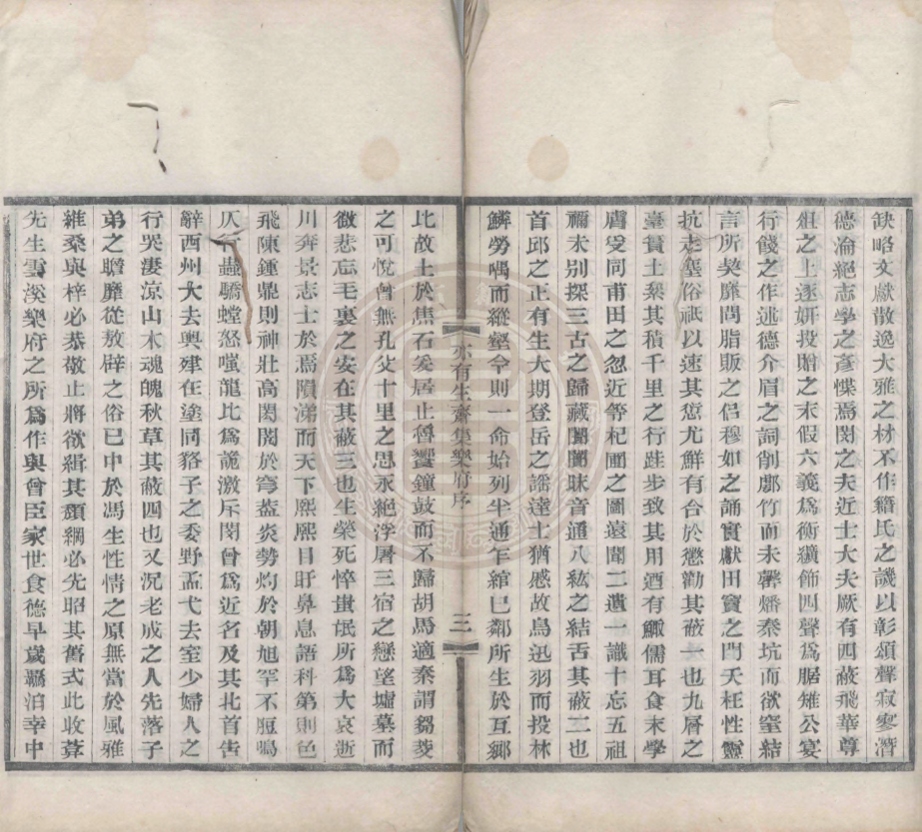 缺略文獻散逸大雅之材不作籍氏之譏以彰頌聲寂寥潛
德淪絕志學之彥慄焉閔之夫近士大夫厥有四蔽飛華尊
俎之上逐妍投贈之末假六義爲衡纊飾四聲爲腒雉公宴
行餞之作述德介眉之詞削鄏竹而未罄燔秦坑而欲窒結
言所契靡問脂販之侶穆如之誦實獻田竇之門夭枉性靈
抗走塵俗祇以速其愆尤鮮有合於懲勸其蔽一也九層之
臺蕢土絫其積千里之行跬步致其用酒有鯫儒耳食末學
膚受同甫田之忽近等杞圃之圖遠聞二遺一識十忘五祖
禰未別探三古之歸藏闤闠昧音通八紘之結舌其蔽二也
首邱之正有生大期登岳之謠達士猶感故鳥迅羽而投林
鱗勞喁而縱壑今則一命始列半通乍綰巳鄰所生於互鄉
亦有生齋集樂府序 三
比故土於焦石爰居止魯饗鐘鼓而不歸胡馬適秦謂芻茭
之可悅曾無孔父十里之思永絕浮屠三宿之戀望墟墓而
徵悲忘毛裏之安在其蔽三也生榮死悴蚩氓所爲大哀逝
川奔景志士於焉隕涕而天下熙熙目盱鼻息語科第則色
飛陳鍾鼎則神壯高閎閱於穹蓋炎勢灼於朝旭罕不脰鳴
仄行蟲驕螳怒嗤龍比爲詭激斥閔曾爲近名及其北首告
辭西州大去輿建在塗同貉子之委野盂弋去室少婦人之
行哭淒涼山木魂魄秋草其蔽四也又況老成之人先落子
弟之瞻靡從敖辟之俗已中於馮生性情之原無當於風雅
維桑與梓必恭敬止將欲緝其頹綱必先昭其舊式此收葊
先生雲溪樂府之所爲作與曾臣家世食德早歲飄泊幸中